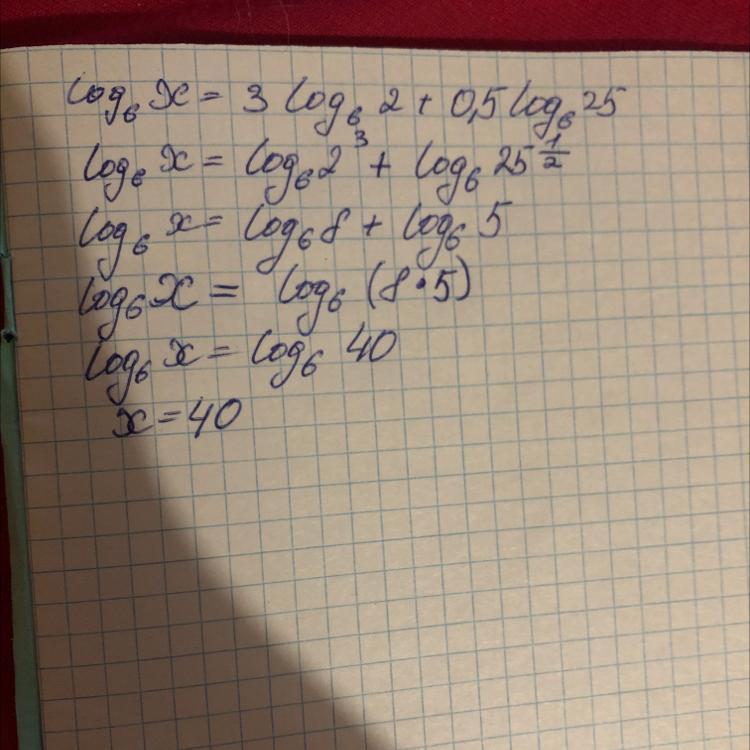 log₆ x = 3 log₆ 2 + 0,5 log₆ 25
log₆ x = log₆ 2³ + log₆ 25^{1/2}
log₆ x = log₆ 8 + log₆ 5
log₆ x = log₆ (8·5)
log₆ x = log₆ 40
x = 40